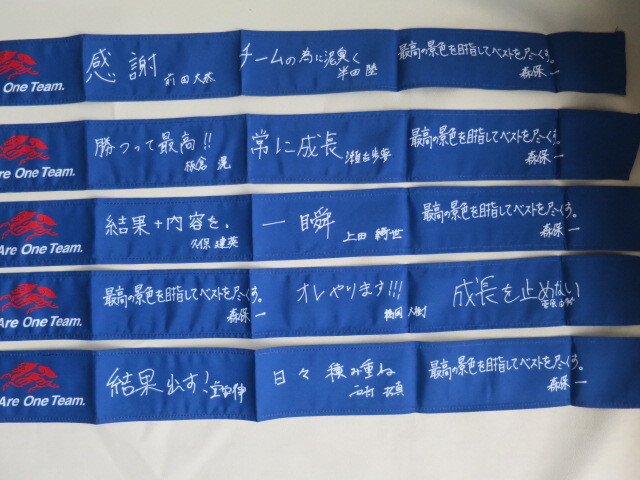 One Team.
感謝
前田大然
チームの為に泥臭く
半田陸
最高の景色を目指してベストを尽くす。
森保一
Are One Team.
勝つって最高!!
板倉滉
常に成長
瀬古歩夢
最高の景色を目指してベストを尽くす。
森保一
Are One Team.
結果+内容を、
久保建英
一瞬
上田綺世
最高の景色を目指してベストを尽くす。
森保一
Are One Team.
最高の景色を目指してベストを尽くす。
森保一
オレやります!!!
橋岡大樹
成長を止めない
菅原由勢
Are One Team.
結果出す!
室屋伸
日々積み重ね
西村拓真
最高の景色を目指してベストを尽くす。
森保一